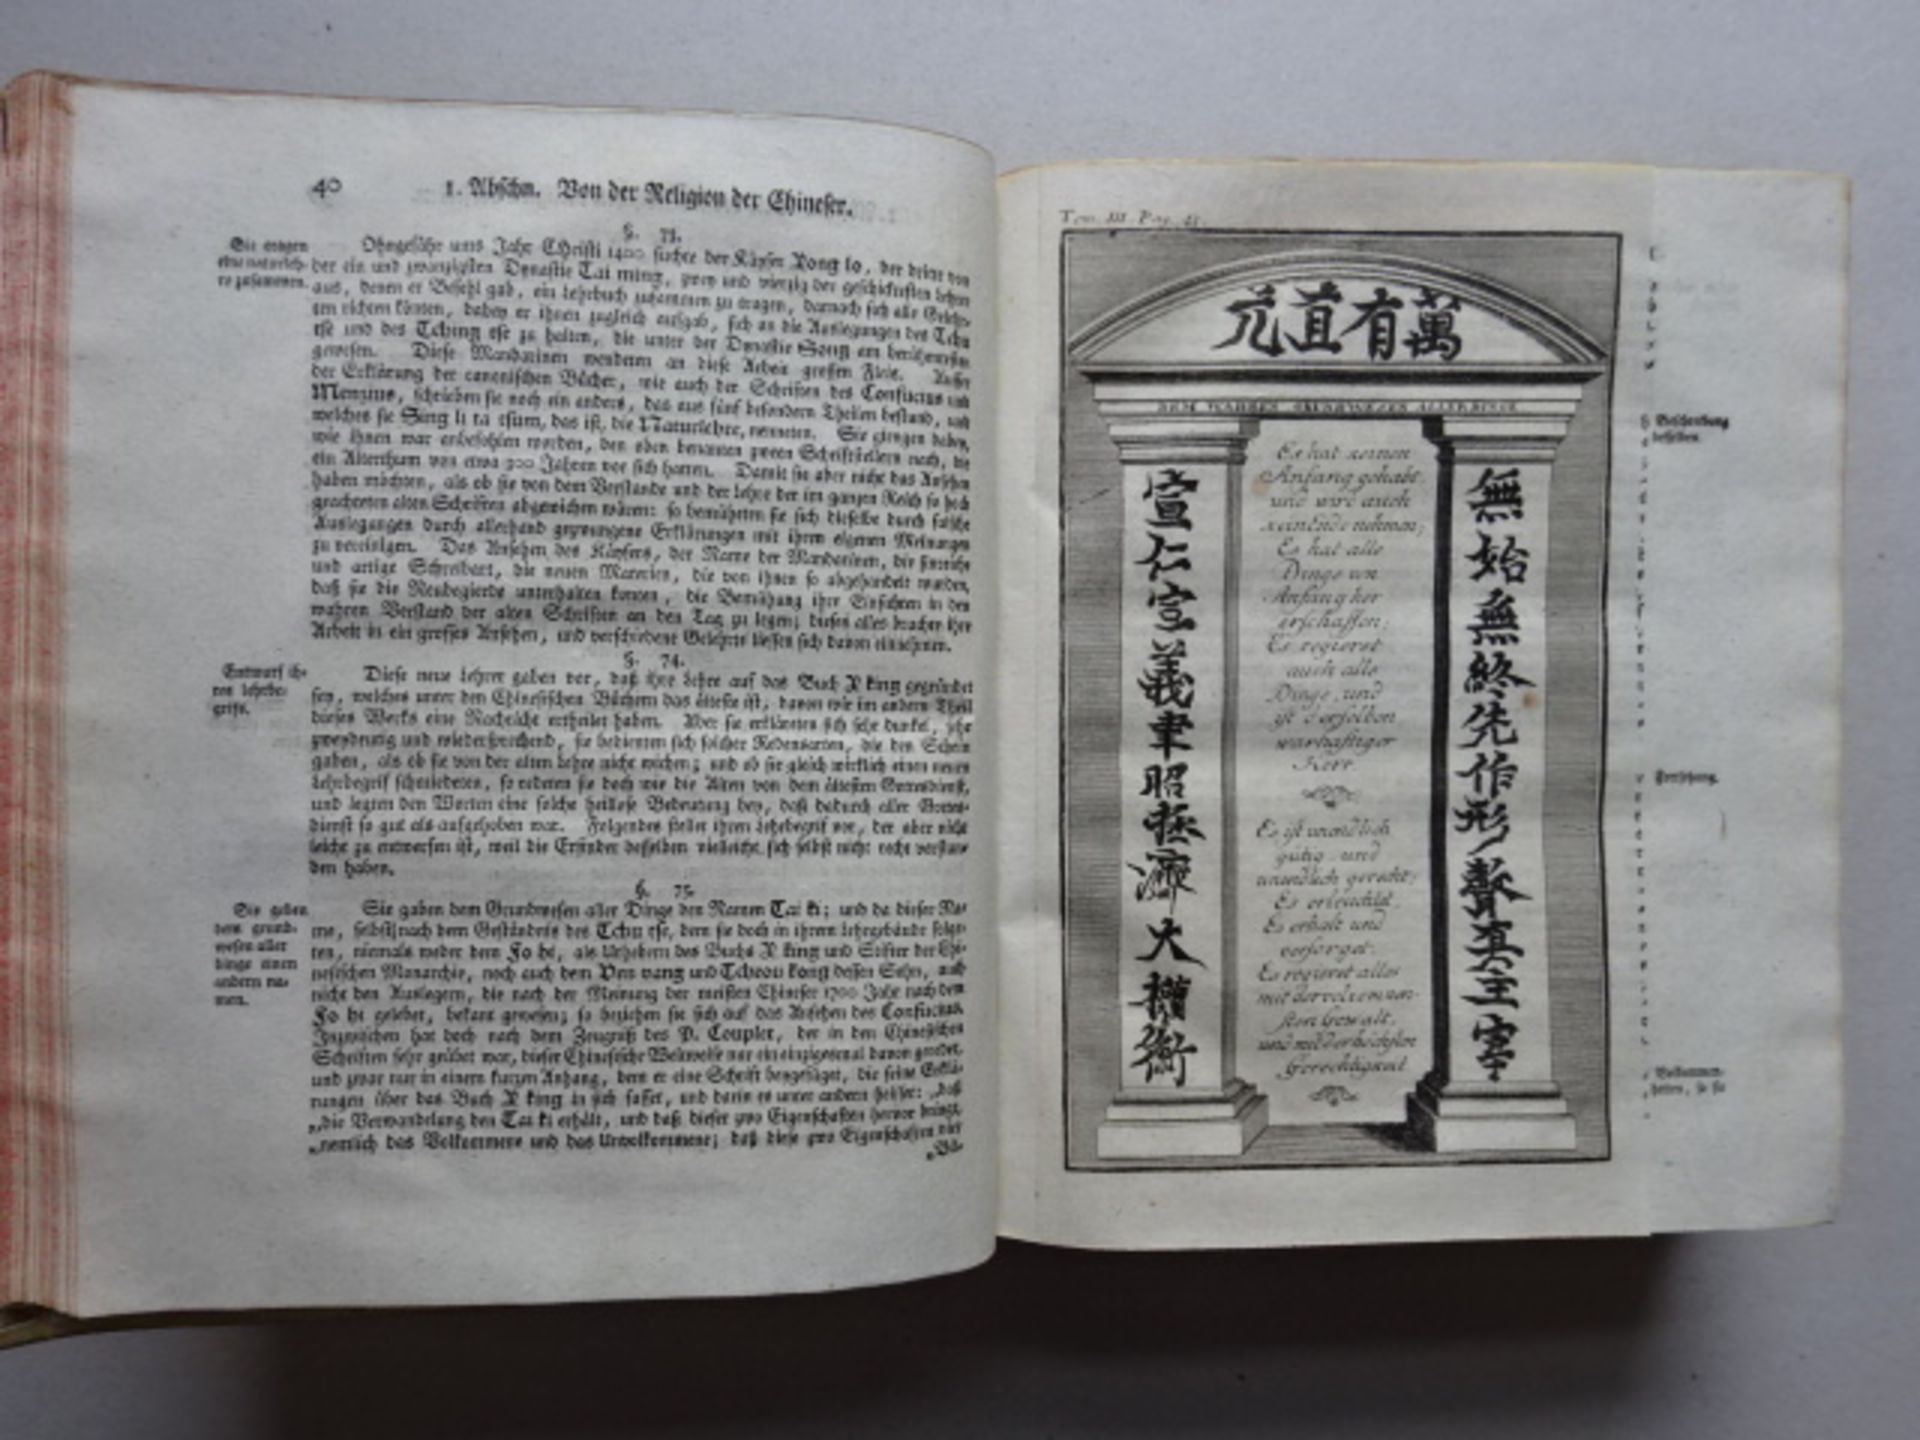 40
1. Abschn. Von der Religion der Chineser.
§. 73.
Ohngefähr ums Jahr Christi 1400 suchte der Kayser Yong lo, der dritte von
der ein und zwanzigsten Dynastie Tai ming, zwey und vierzig der geschicktesten Lehrer
aus, denen er Befehl gab, ein Lehrbuch zusammen zu tragen, darnach sich alle Gelehr-
ten richten könten, dabey er ihnen zugleich aufgab, sich an die Auslegungen des Tchu
tse und des Tching tse zu halten, die unter der Dynastie Song am berühmtesten
gewesen. Diese Mandarinen wendeten an diese Arbeit grossen Fleis. Ausser
der Erklärung der canonischen Bücher, wie auch der Schriften des Confucius und
Menzius, schrieben sie noch ein anders, das aus fünf besondern Theilen bestand, und
welches sie Sing li ta tsuen, das ist, die Naturlehre, nenneten. Sie giengen dabey,
wie ihnen war anbefohlen worden, den oben benanten zween Schriftstellern nach, die
ein Alterthum von etwa 300 Jahren vor sich hatten. Damit sie aber nicht das Ansehen
haben möchten, als ob sie von dem Verstande und der Lehre der im ganzen Reich so hoch
geachteten alten Schriften abgewichen wären: so bemüheten sie sich dieselbe durch falsche
Auslegungen durch allerhand gezwungene Erklärungen mit ihren eigenen Meinungen
zu vereinigen. Das Ansehen des Kaysers, der Name der Mandarinen, die sinreiche
und artige Schreibart, die neuen Materien, die von ihnen so abgehandelt wurden,
daß sie die Neubegierde unterhalten konten, die Bemühung ihre Einsichten in den
wahren Verstand der alten Schriften an den Tag zu legen; dieses alles brachte ihre
Arbeit in ein grosses Ansehen, und verschiedene Gelehrte liessen sich davon einnehmen.
Sie tragen
eine naturleh-
re zusammen.
§. 74.
Diese neue Lehrer gaben vor, daß ihre Lehre auf das Buch Y king gegründet
sey, welches unter den Chinesischen Büchern das älteste ist, davon wir im andern Theil
dieses Werks eine Nachricht ertheilet haben. Aber sie erklärten sich sehr dunkel, sehr
zweydeutig und widersprechend, sie bedienten sich solcher Redensarten, die den Schein
gaben, als ob sie von der alten Lehre nicht wichen; und ob sie gleich wirklich einen neuen
Lehrbegrif schmiedeten, so redeten sie doch wie die Alten von dem ältesten Gottesdienst,
und legten den Worten eine solche heillose Bedeutung bey, daß dadurch aller Gottes-
dienst so gut als aufgehoben war. Folgendes stellet ihren Lehrbegrif vor, der aber nicht
leicht zu entwerfen ist, weil die Erfinder desselben vielleicht sich selbst nicht recht verstan-
den haben.
Entwurf ih-
res lehrbe-
grifs.
§. 75.
Sie gaben dem Grundwesen aller Dinge den Namen Tai ki; und da dieser Na-
me, selbst nach dem Geständnis des Tchu tse, dem sie doch in ihrem Lehrgebäude folge-
ten, niemals weder dem Fo hi, als Urhebern des Buchs Y king und Stifter der Chi-
nesischen Monarchie, noch auch dem Ven vang und Tcheou kong dessen Sohn, auch
nicht den Auslegern, die nach der Meinung der meisten Chineser 1700 Jahr nach dem
Fo hi gelebet, bekant gewesen; so beziehen sie sich auf das Ansehen des Confucius.
Inzwischen hat doch nach dem Zeugniß des P. Couplet, der in den Chinesischen
Schriften sehr geübet war, dieser Chinesische Weltweise nur ein einzigesmal davon geredet,
und zwar nur in einem kurzen Anhang, dem er eine Schrift beygefüget, die seine Erklä-
rungen über das Buch Y king in sich fasset, und darin es unter andern heisset: „daß
„die Verwandelung den Tai ki erhält, und daß dieser zwo Eigenschaften hervor bringt,
„nemlich das Volkommene und das Unvolkommene; daß diese zwo Eigenschaften vier
„Bil-
Sie geben
dem grund-
wesen aller
dinge einen
andern na-
men.
Tom. III. Pag. 41.
萬有眞元
DEM WAHREN GRUNDWESEN ALLER DINGE
無始無終先作形聲真主宰
宣仁宣義聿昭拯濟大權衡
Es hat keinen
Anfang gehabt,
und wird auch
kein Ende nehmen;
Es hat alle
Dinge von
Anfang her
erschaffen;
Es regieret
auch alle
Dinge, und
ist derselben
warhaftiger
Herr.
Es ist unendlich
gütig und
unendlich gerecht;
Es erleuchtet,
Es erhält und
versorget.
Es regieret alles
mit der volkommen-
sten Gewalt,
und mit der höchsten
Gerechtigkeit
Beschreibung
desselben.
Fortsetzung.
Volkommen-
heiten, so sie